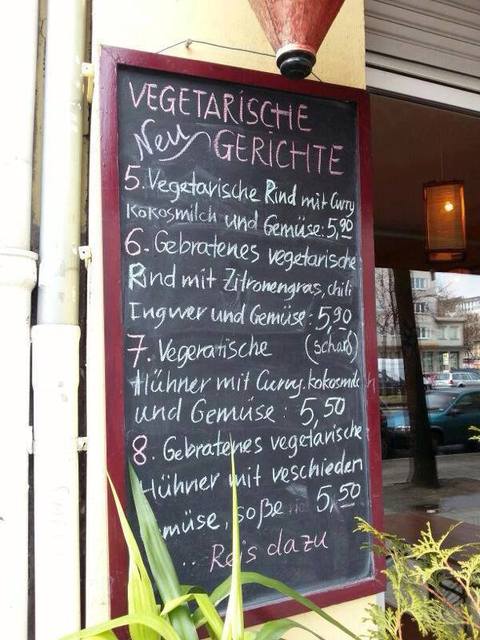 VEGETARISCHE
Neu GERICHTE
5. Vegetarische Rind mit Curry
Kokosmilch und Gemüse: 5,90
6. Gebratenes vegetarische
Rind mit Zitronengras, chili
Ingwer und Gemüse: 5,90
7. Vegeratische (scharf)
Hühner mit Curry. kokosmilch
und Gemüse: 5,50
8. Gebratenes vegetarische
Hühner mit veschieden
müse, soße 5,50
Reis dazu